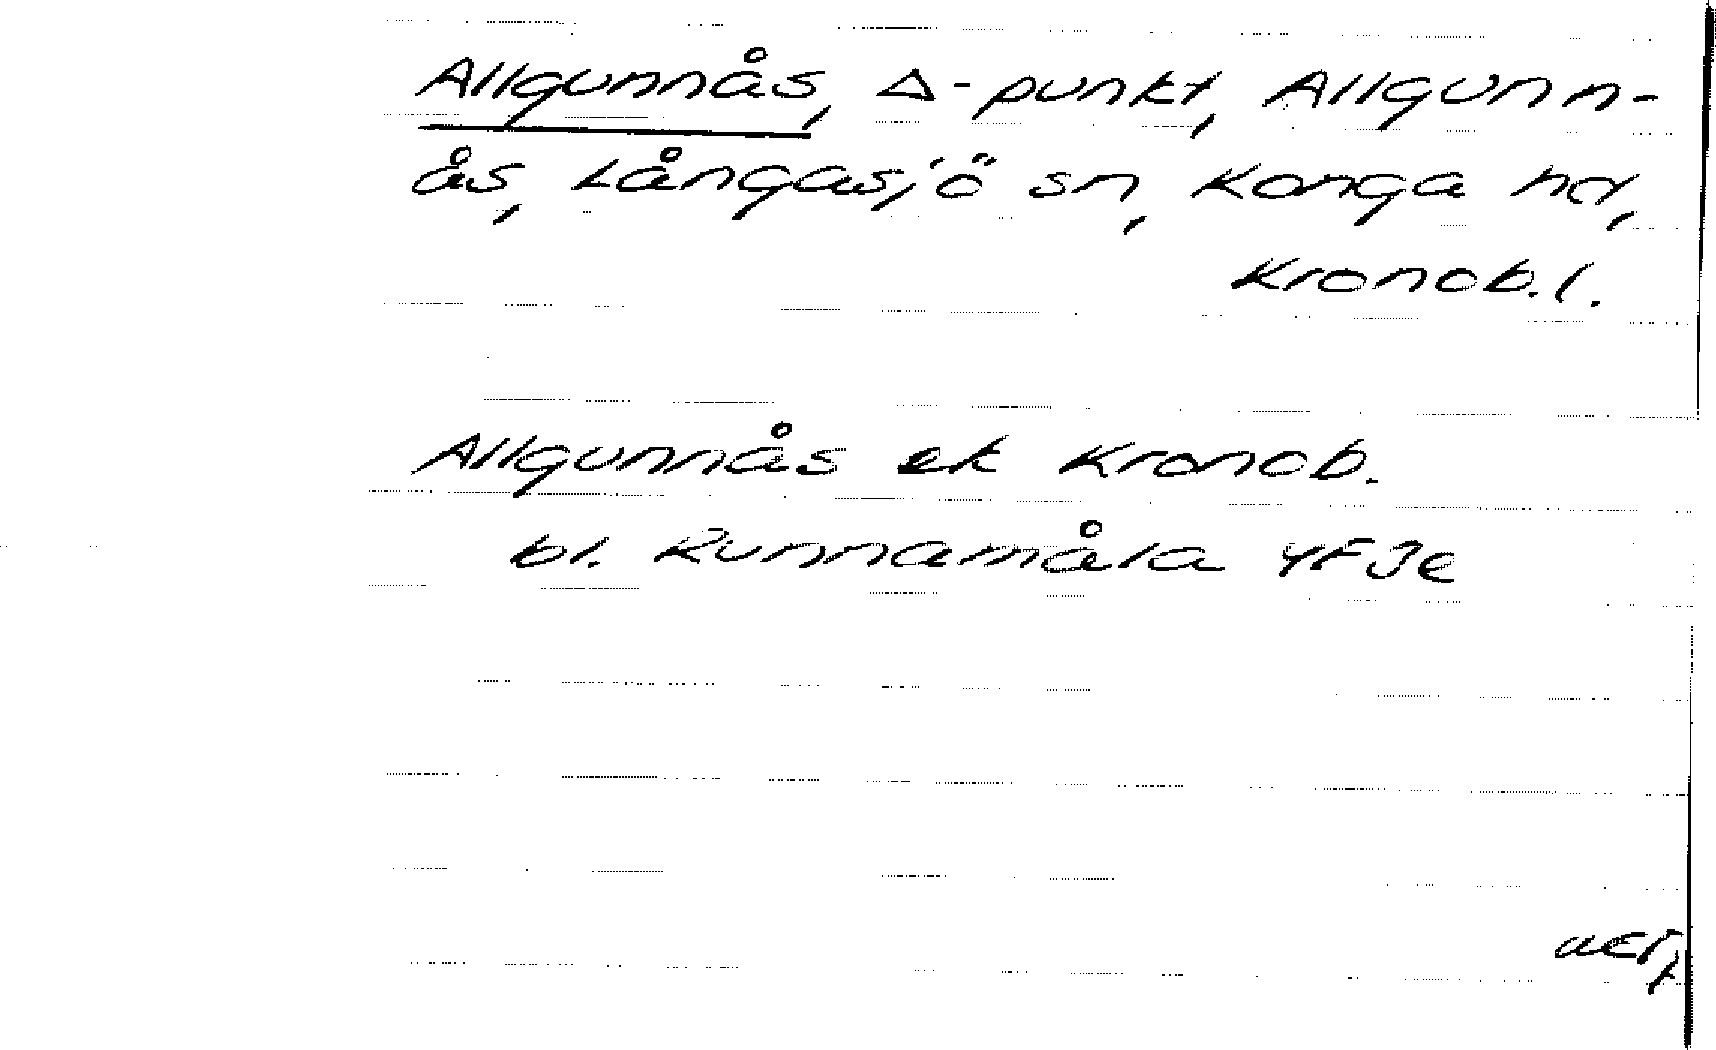 Allgunnås, Δ-punkt, Allgunn-
ås, Långasjö sn, Konga hd,
Kronob. l.
Allgunnås ek Kronob.
bl. Runnamåla 4F3e